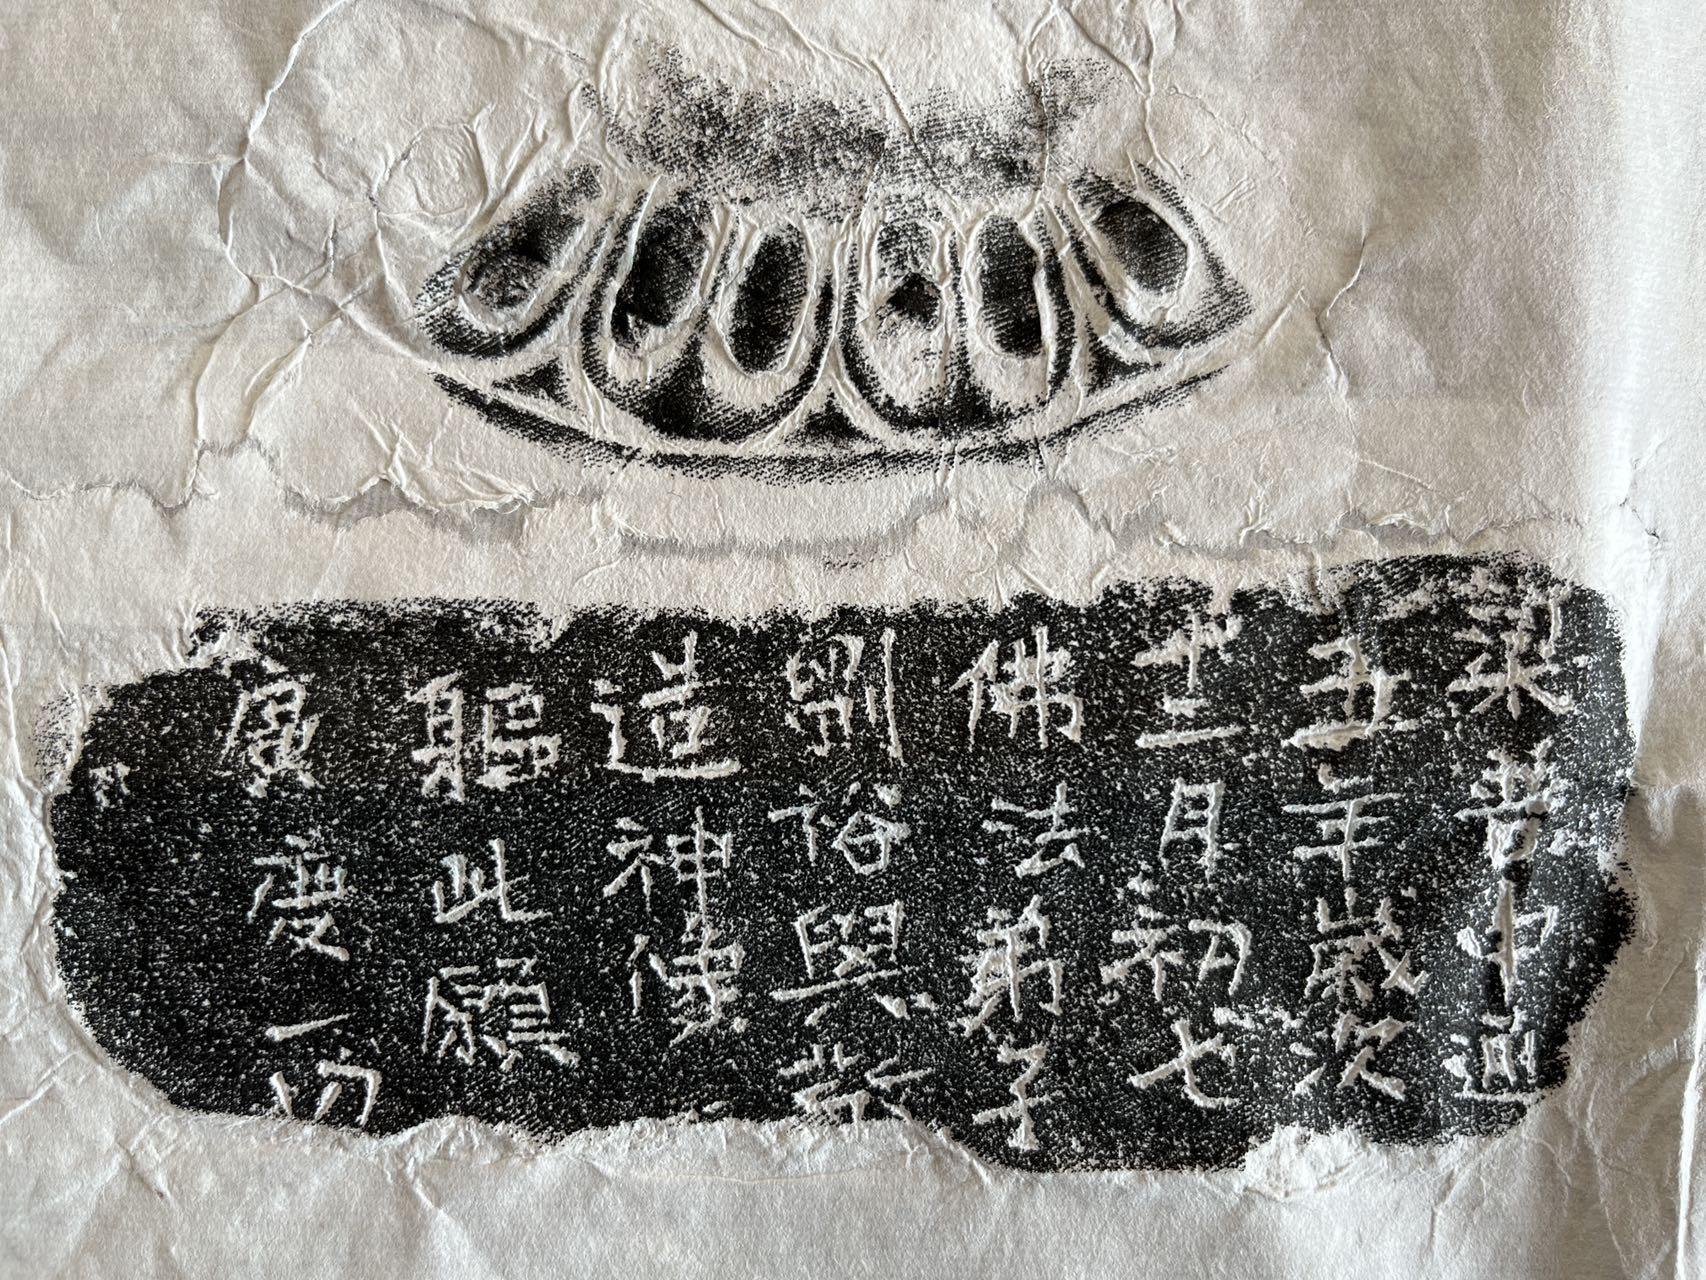 梁普中通
五年歲次
十二月初七
佛法弟子
劉裕與敬
造神像
軀此願
廣度一切